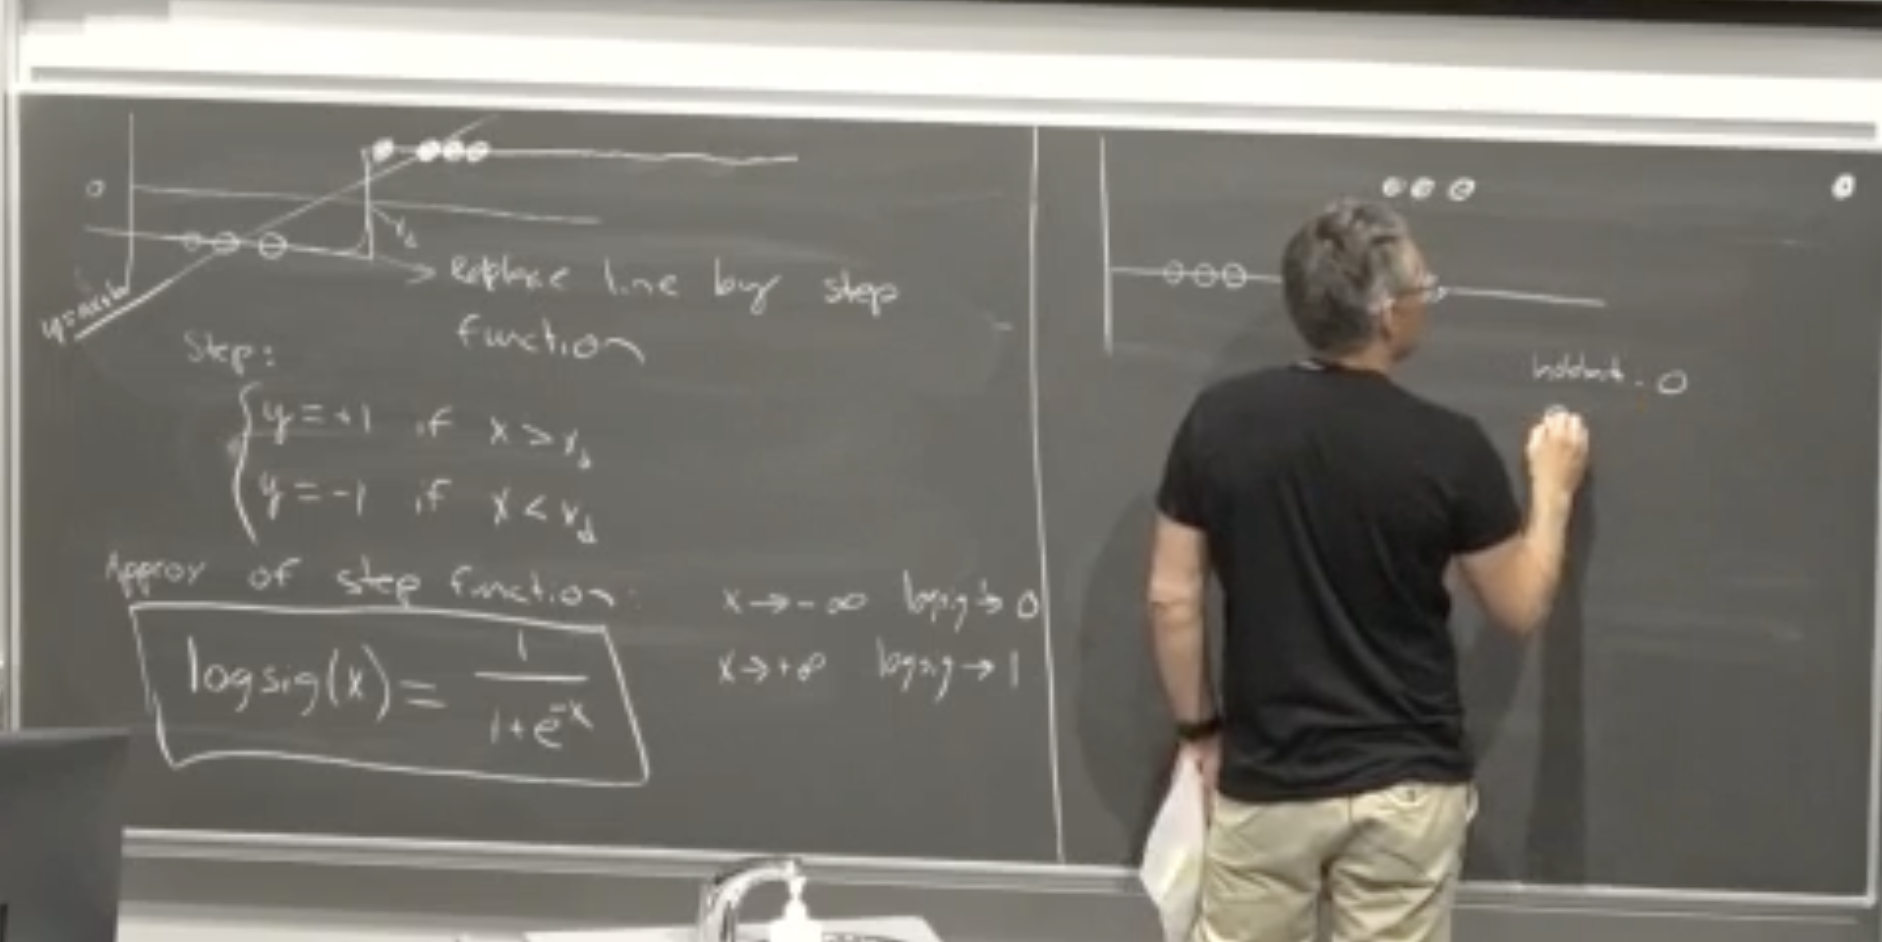 0
x_d
y=ax+b
→ Replace line by step
function
Step:
{ y = +1 if x > x_d
y = -1 if x < x_d
Approx of step function:
logsig(x) = 1/(1+e^-x)
x → -∞ logsig → 0
x → +∞ logsig → 1
0